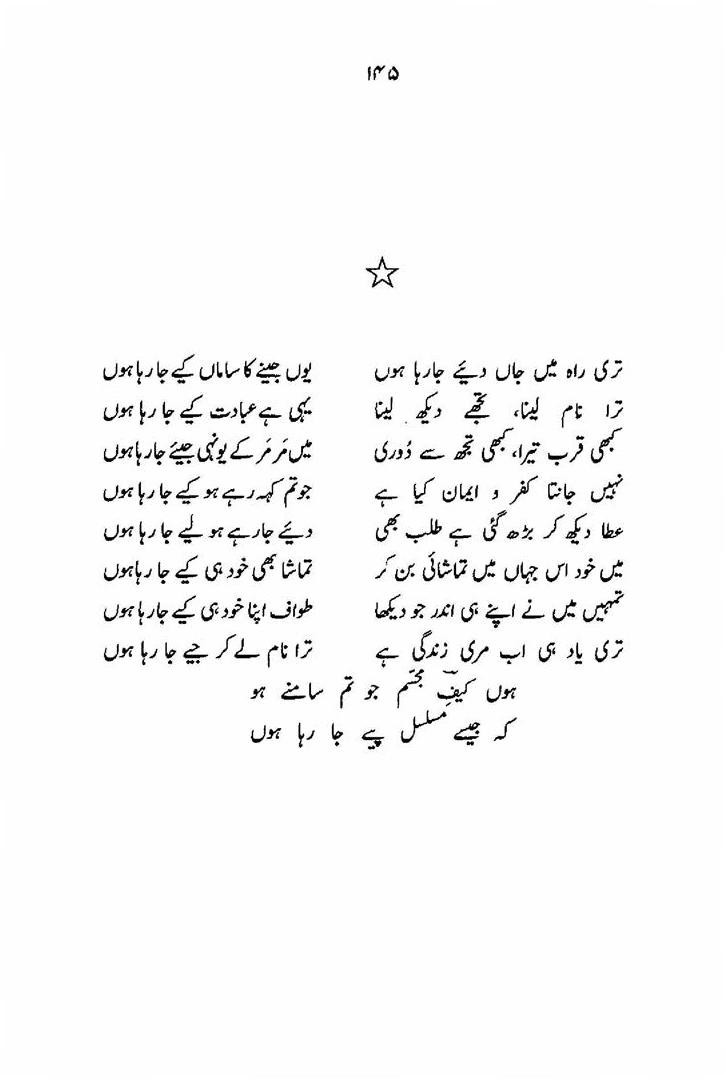 ۱۴۵
تری راہ میں جاں دئیے جارہا ہوں یوں جینے کا ساماں کیے جا رہا ہوں
ترا نام لینا، تجھے دیکھ لینا یہی ہے عبادت کیے جا رہا ہوں
کبھی قرب تیرا، کبھی تجھ سے دُوری میں مَر مَر کے یونہی جیئے جارہاہوں
نہیں جانتا کفر و ایمان کیا ہے جو تم کہہ رہے ہو کیے جا رہا ہوں
عطا دیکھ کر بڑھ گئی ہے طلب بھی دئیے جارہے ہو لیے جا رہا ہوں
میں خود اس جہاں میں تماشائی بن کر تماشا بھی خود ہی کیے جا رہاہوں
تمہیں میں نے اپنے ہی اندر جو دیکھا طواف اپنا خود ہی کیے جارہا ہوں
تری یاد ہی اب مری زندگی ہے ترا نام لے کر جیے جا رہا ہوں
ہوں کیفِ مجسّم جو تم سامنے ہو
کہ جیسے مسلسل پیے جا رہا ہوں